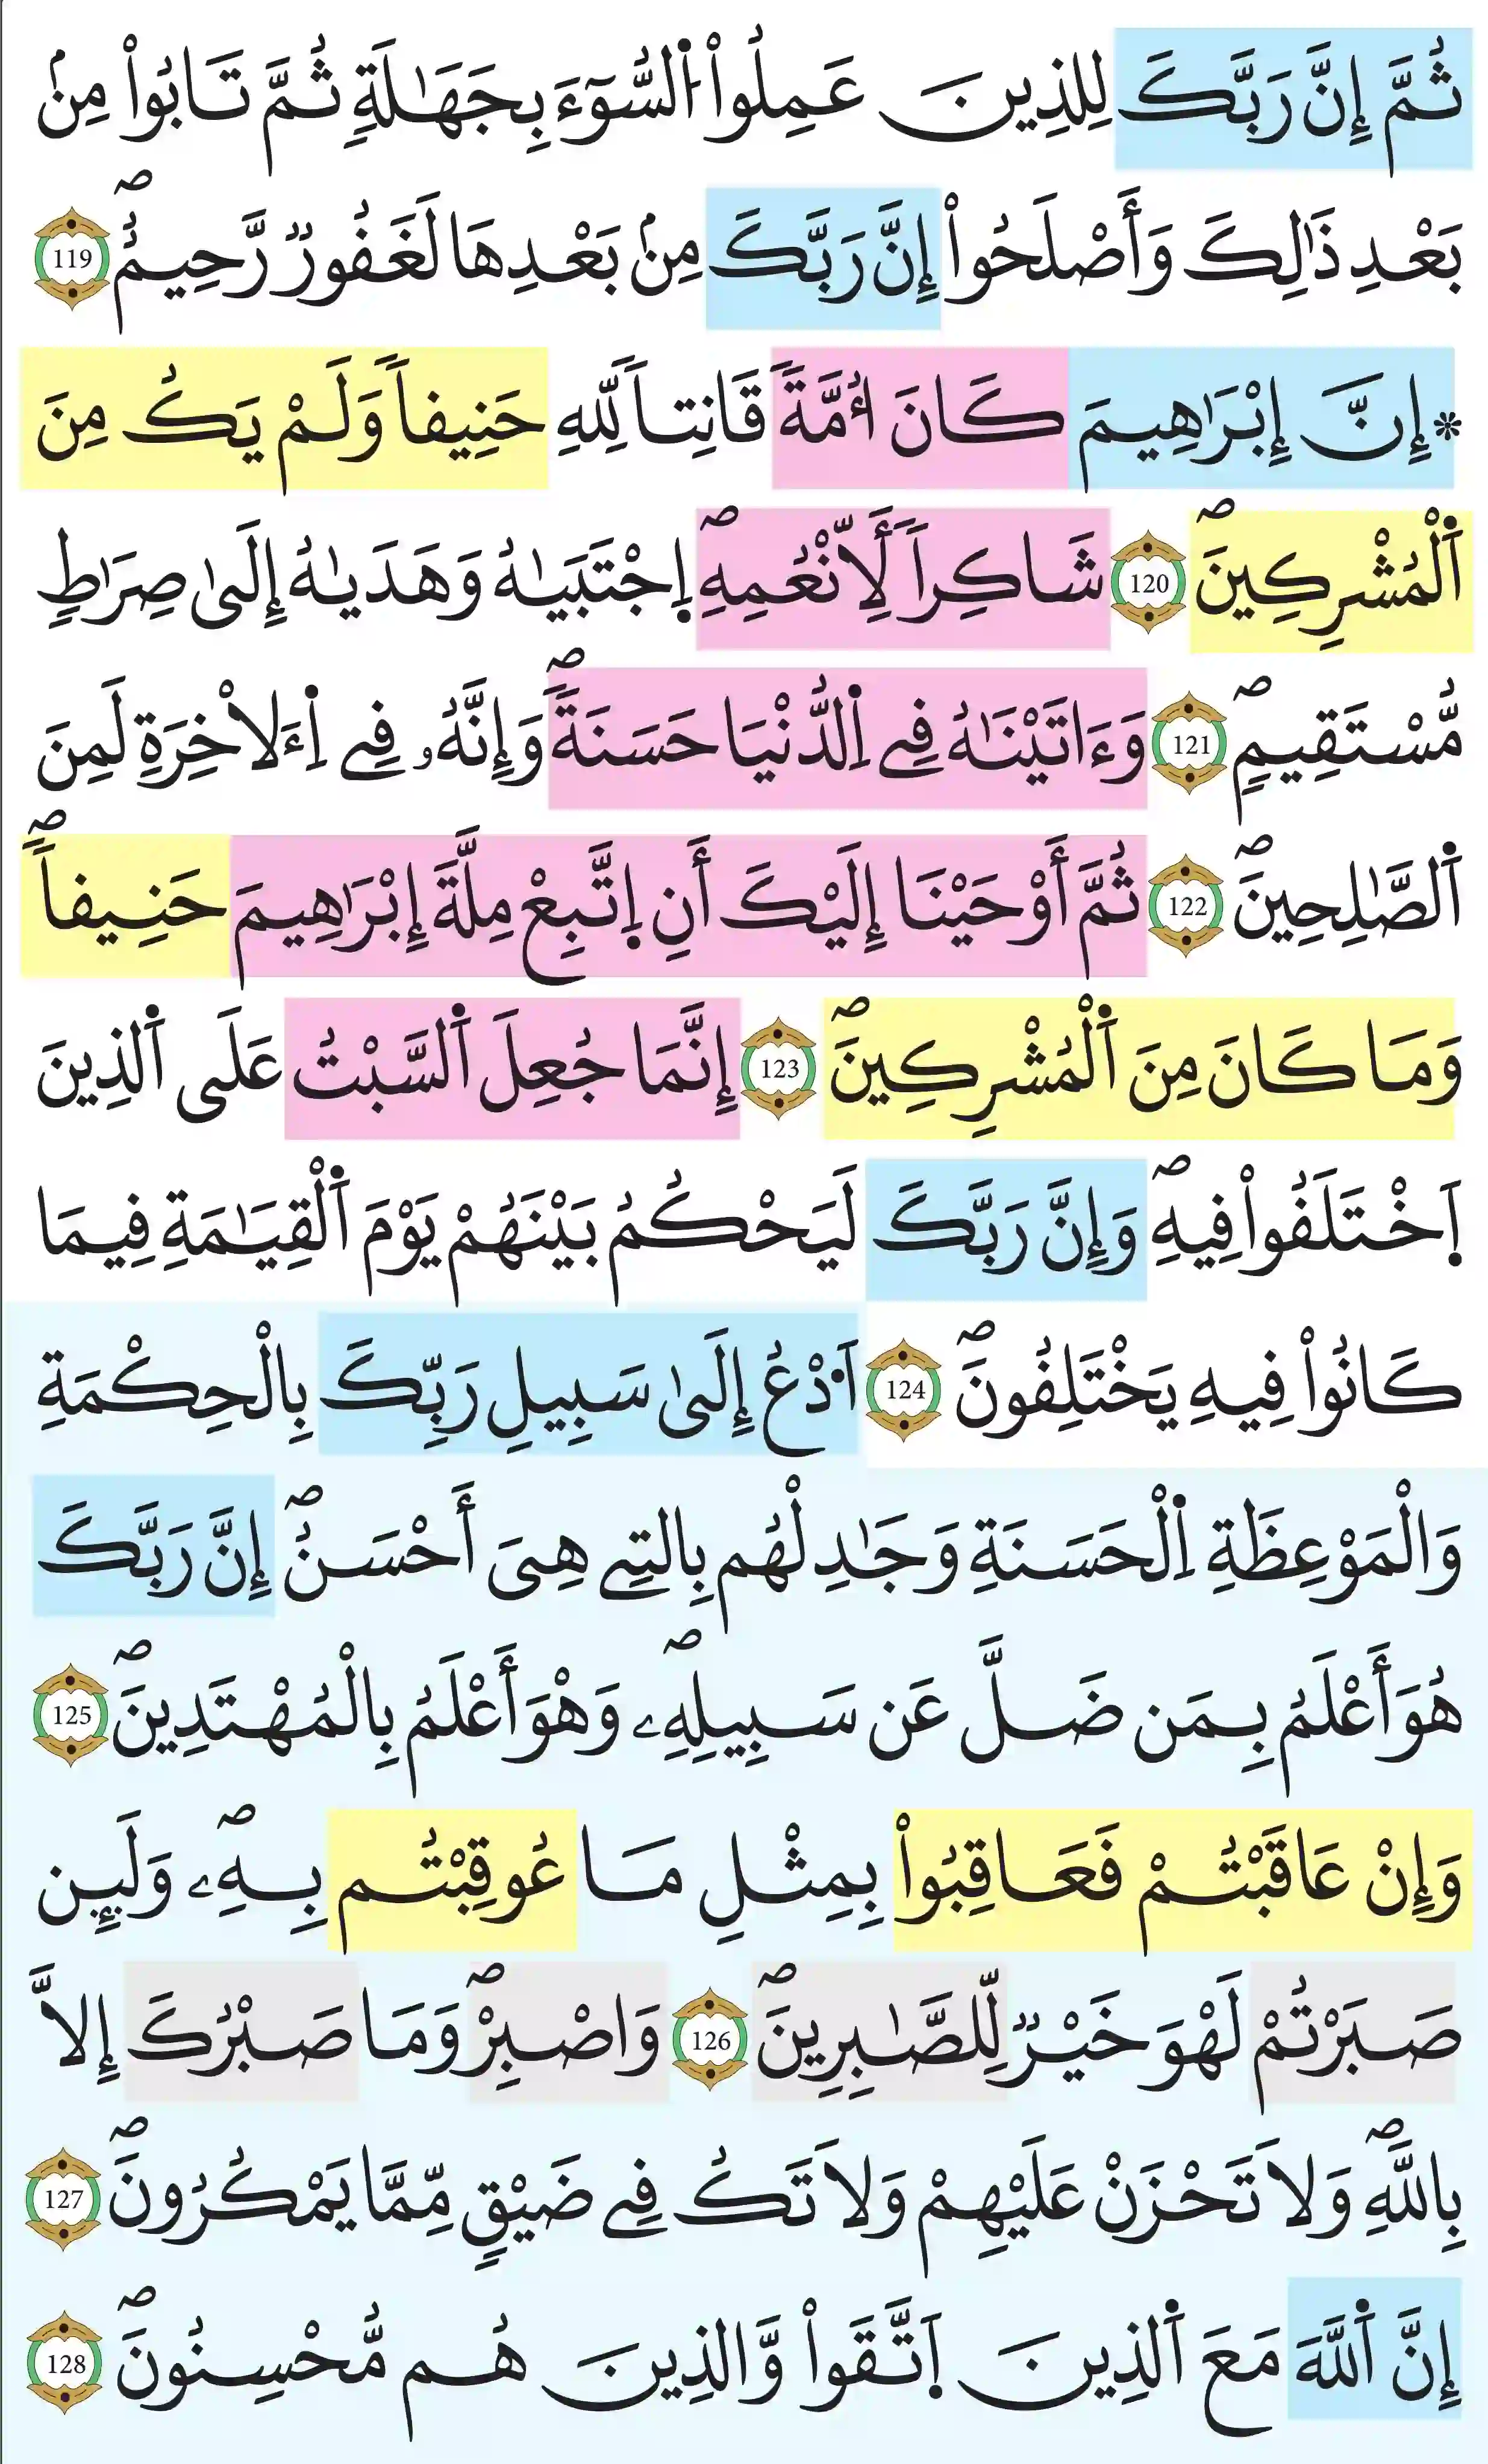 ثُمَّ إِنَّ رَبَّكَ لِلذِينَ عَمِلُواْ اُ۬لسُّوٓءَ بِجَهَٰلَةٖ ثُمَّ تَابُواْ مِنۢ
بَعْدِ ذَٰلِكَ وَأَصْلَحُواْ إِنَّ رَبَّكَ مِنۢ بَعْدِهَا لَغَفُورٞ رَّحِيمٌۖ 119
* إِنَّ إِبْرَٰهِيمَ كَانَ أُمَّةٗ قَانِتاٗ لِّلهِ حَنِيفاٗ وَلَمْ يَكُ مِنَ
اَ۬لْمُشْرِكِينَۖ 120 شَاكِراٗ لِّأَنْعُمِهِۖ اِ۪جْتَبَيٰهُ وَهَدَيٰهُ إِلَىٰ صِرَٰطٖ
مُّسْتَقِيمٖۖ 121 وَءَاتَيْنَٰهُ فِے اِ۬لدُّنْيَا حَسَنَةٗۖ وَإِنَّهُۥ فِے اِ۬ءَلَاخِرَةِ لَمِنَ
اَ۬لصَّٰلِحِينَۖ 122 ثُمَّ أَوْحَيْنَا إِلَيْكَ أَنِ اِ۪تَّبِعْ مِلَّةَ إِبْرَٰهِيمَ حَنِيفاٗۖ
وَمَا كَانَ مِنَ اَ۬لْمُشْرِكِينَۖ 123 إِنَّمَا جُعِلَ اَ۬لسَّبْتُ عَلَى اَ۬لذِينَ
اَ۪خْتَلَفُواْ فِيهِۖ وَإِنَّ رَبَّكَ لَيَحْكُمُ بَيْنَهُمْ يَوْمَ اَ۬لْقِيَٰمَةِ فِيمَا
كَانُواْ فِيهِ يَخْتَلِفُونَۖ 124 اَ۟دْعُ إِلَىٰ سَبِيلِ رَبِّكَ بِالْحِكْمَةِ
وَالْمَوْعِظَةِ اِ۬لْحَسَنَةِ وَجَٰدِلْهُم بِالتِے هِىَ أَحْسَنُۖ إِنَّ رَبَّكَ
هُوَ أَعْلَمُ بِمَن ضَلَّ عَن سَبِيلِهِۦۖ وَهْوَ أَعْلَمُ بِالْمُهْتَدِينَۖ 125
وَإِنْ عَاقَبْتُمْ فَعَاقِبُواْ بِمِثْلِ مَا عُوقِبْتُم بِهِۦۖ وَلَئِن
صَبَرْتُمْ لَهْوَ خَيْرٞ لِّلصَّٰبِرِينَۖ 126 وَاصْبِرْۖ وَمَا صَبْرُكَ إِلَّا
بِاللَّهِۖ وَلَا تَحْزَنْ عَلَيْهِمْ وَلَا تَكُ فِے ضَيْقٖ مِّمَّا يَمْكُرُونَۖ 127
إِنَّ اَ۬للَّهَ مَعَ اَ۬لذِينَ اَ۪تَّقَواْ وَّالذِينَ هُم مُّحْسِنُونَۖ 128